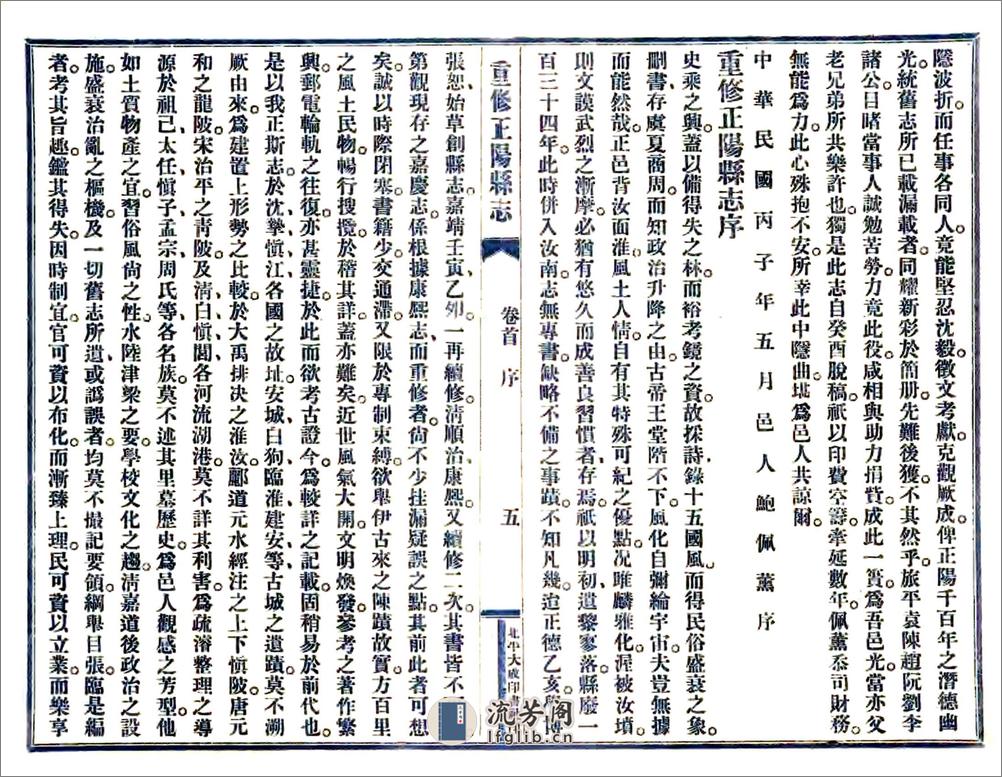 隱波折而任事各同人竟能堅忍沈毅徵文考獻克觀厥成俾正陽千百年之潛德幽
光統舊志所已載漏載者同耀新彩於簡册先難後獲不其然乎旅平袁陳趙阮劉李
諸公目睹當事人誠勉苦勞力竟此役咸相與助力捐貲成此一簣爲吾邑光當亦父
老兄弟所共樂許也獨是此志自癸酉脫稿祇以印費空籌牽延數年佩薰忝司財務
無能爲力此心殊抱不安所幸此中隱曲堪爲邑人共諒爾
中華民國丙子年五月邑人鮑佩薰序
重修正陽縣志序
史乘之興蓋以備得失之林而裕考鏡之資故採詩錄十五國風而得民俗盛衰之象
刪書存虞夏商周而知政治升降之由古帝王堂階不下風化自彌綸宇宙夫豈無據
而能然哉正邑背汝面淮風土人情自有其特殊可紀之優點况雎麟雅化渥被汝墳
則文謨武烈之漸摩必猶有悠久而成善良習慣者存焉祇以明初遺黎寥落縣廢一
百三十四年此時併入汝南志無專書缺略不備之事蹟不知凡幾迨正德乙亥
重修正陽縣志
卷首 序 五
張恕始草創縣志嘉靖壬寅乙卯一再續修淸順治康熙又續修二次其書皆不
第觀現存之嘉慶志係根據康熙志而重修者尙不少挂漏疑誤之點其前此者可想
矣誠以時際閉塞書籍少交通滯又限於專制束縛欲舉伊古來之陳蹟故實方百里
之風土民物暢行搜攬於稽其詳蓋亦難矣近世風氣大開文明煥發參考之著作繁
興郵電輪軌之往復亦甚靈捷於此而欲考古證今爲較詳之記載固稍易於前代也
是以我正斯志於沈摯愼江各國之故址安城白狗臨淮建安等古城之遺蹟莫不溯
厥由來爲建置上形勢之比較於大禹排決之淮汝酈道元水經注之上下愼陂唐元
和之龍陂宋治平之靑陂及淸白愼閭各河流湖港莫不詳其利害爲疏濬整理之導
源於祖己太任愼子孟宗周氏等各名族莫不述其里墓歷史爲邑人觀感之芳型他
如土質物產之宜習俗風尙之性水陸津梁之要學校文化之趨淸嘉道後政治之設
施盛衰治亂之樞機及一切舊志所遺或譌誤者均莫不撮記要領綱舉目張臨是編
者考其旨趣鑑其得失因時制宜官可資以布化而漸臻上理民可資以立業而樂享
流芳閣
lfglib.cn